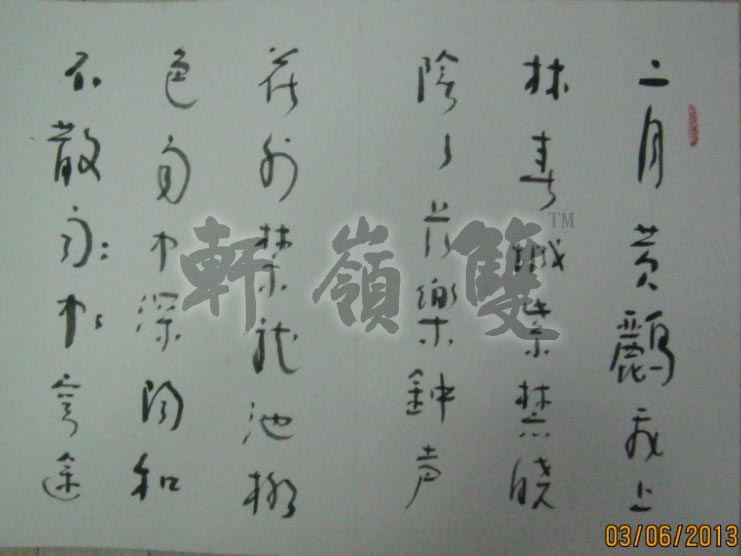 二月黄鸝飛上
林春城紫禁曉
陰陰長樂鐘声
花外禁龍池柳
色雨中深陽和
不散窮途
雙嶺軒™
03/06/2013